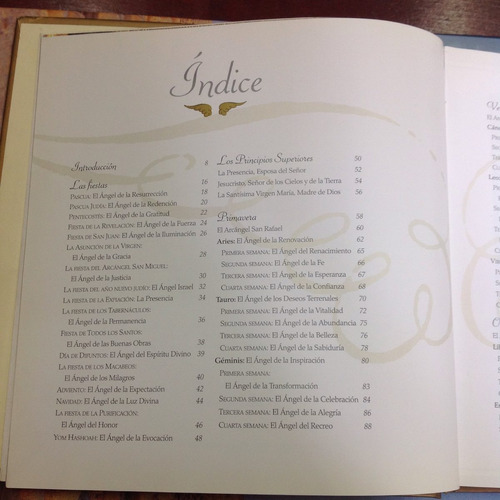 Índice
Introducción 8
Las fiestas 16
PASCUA: El Ángel de la Resurrección 18
PASCUA JUDÍA: El Ángel de la Redención 20
PENTECOSTÉS: El Ángel de la Gratitud 22
FIESTA DE LA REVELACIÓN: El Ángel de la Fuerza 24
FIESTA DE SAN JUAN: El Ángel de la Iluminación 26
LA ASUNCIÓN DE LA VIRGEN:
El Ángel de la Gracia 28
LA FIESTA DEL ARCÁNGEL SAN MIGUEL:
El Ángel de la Justicia 30
LA FIESTA DEL AÑO NUEVO JUDÍO: El Ángel Israel 32
LA FIESTA DE LA EXPIACIÓN: La Presencia 34
LA FIESTA DE LOS TABERNÁCULOS:
El Ángel de la Permanencia 36
FIESTA DE TODOS LOS SANTOS:
El Ángel de las Buenas Obras 38
DÍA DE DIFUNTOS: El Ángel del Espíritu Divino 39
LA FIESTA DE LOS MACABEOS:
El Ángel de los Milagros 40
ADVIENTO: El Ángel de la Expectación 42
NAVIDAD: El Ángel de la Luz Divina 44
LA FIESTA DE LA PURIFICACIÓN:
El Ángel del Honor 46
YOM HASHOAH: El Ángel de la Evocación 48
Los Principios Superiores 50
La Presencia, Esposa del Señor 52
Jesucristo: Señor de los Cielos y de la Tierra 54
La Santísima Virgen María, Madre de Dios 56
Primavera 58
El Arcángel San Rafael 60
Aries: El Ángel de la Renovación 62
PRIMERA SEMANA: El Ángel del Renacimiento 65
SEGUNDA SEMANA: El Ángel de la Fe 66
TERCERA SEMANA: El Ángel de la Esperanza 67
CUARTA SEMANA: El Ángel de la Confianza 68
Tauro: El Ángel de los Deseos Terrenales 70
PRIMERA SEMANA: El Ángel de la Vitalidad 72
SEGUNDA SEMANA: El Ángel de la Abundancia 75
TERCERA SEMANA: El Ángel de la Belleza 76
CUARTA SEMANA: El Ángel de la Sabiduría 78
Géminis: El Ángel de la Inspiración 80
PRIMERA SEMANA:
El Ángel de la Transformación 83
SEGUNDA SEMANA: El Ángel de la Celebración 84
TERCERA SEMANA: El Ángel de la Alegría 86
CUARTA SEMANA: El Ángel del Recreo 88